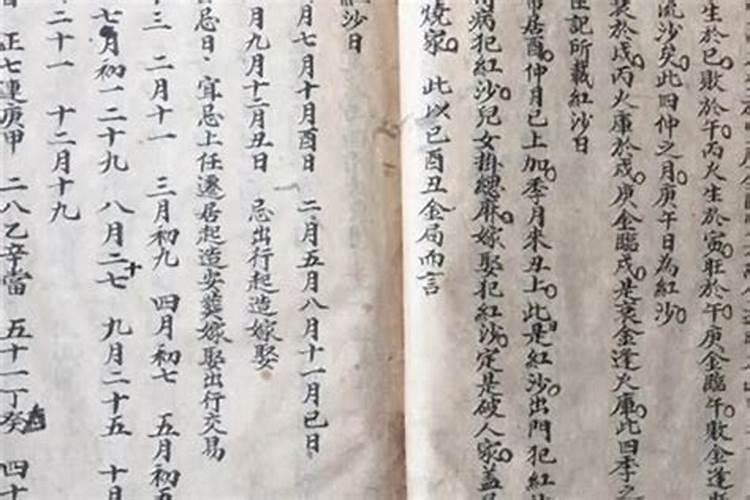 生於巳敗於午丙火生於寅旺於午庚金臨午敗金逢
流沙矣此四仲之月庚午日為紅沙
墓於戌丙火庫於戌庚金臨戌是衰金逢火庫此四季之
記所載紅沙日
居酉仲月巳上加季月未丑上此是紅沙出門犯紅
病犯紅沙兒女掛緦麻嫁娶犯紅沙定是破人家蓋
燒家 此以巳酉丑金局而言
紅沙日
月七月十月酉日 二月五月八月十一月巳日
月九月十二月丑日 忌出行起造嫁娶
忌日 宜忌上任遷居起造安葬嫁娶出行交易
十三 二月十一 三月初九 四月初七 五月初五
七月初一二十九 八月二十七 九月二十五 十月
二十一 十二月十九
正七連庚甲 二八乙辛當 五十一丁癸 四十